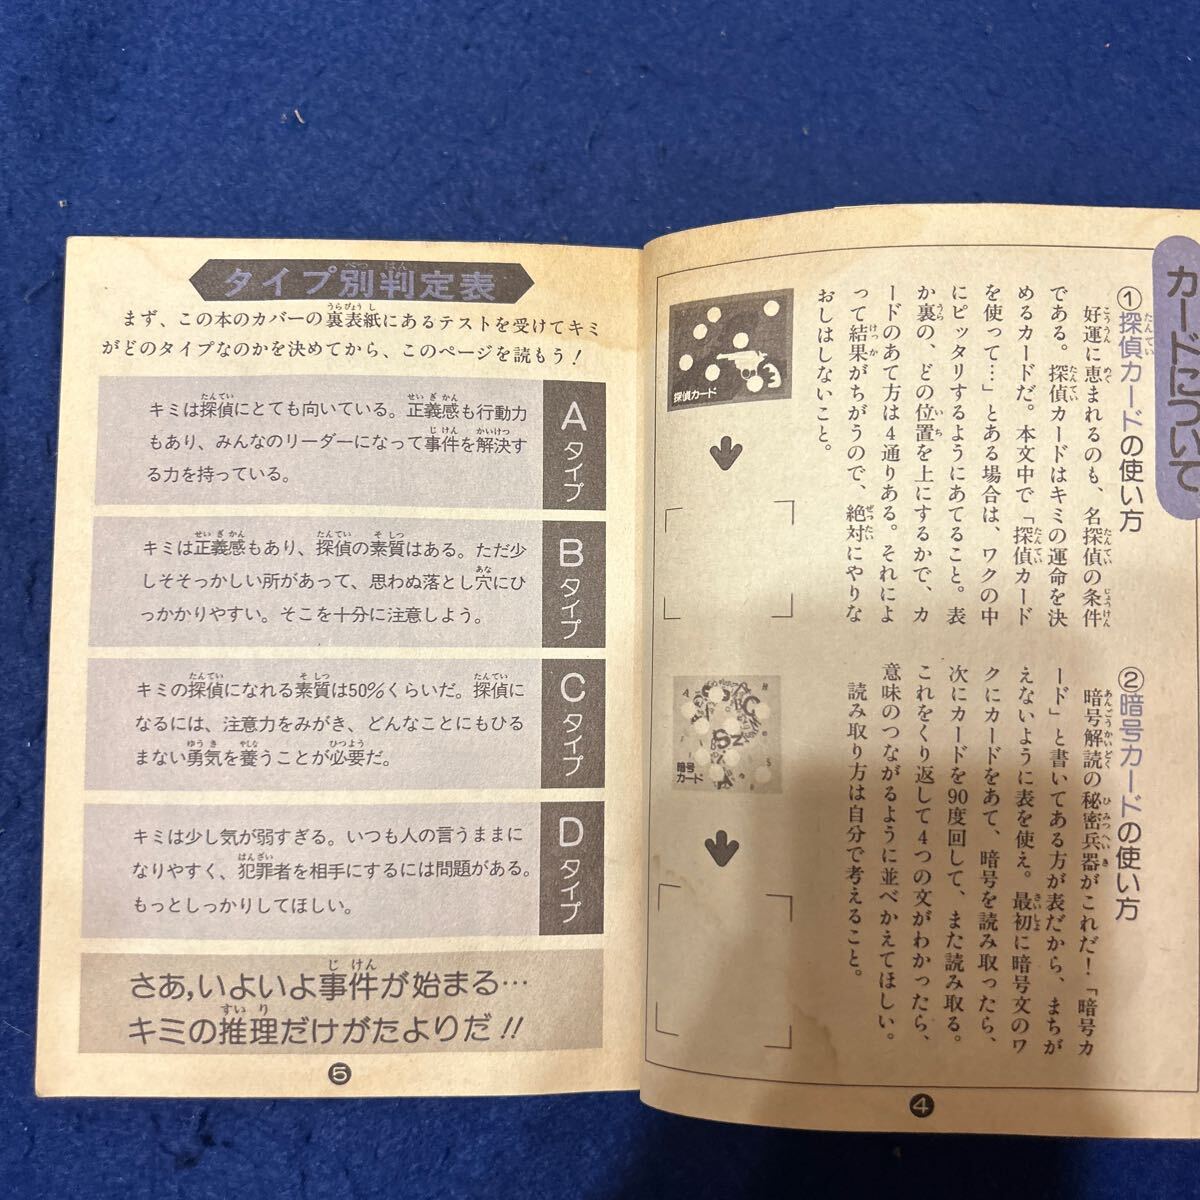 カードについて
①探偵カードの使い方
好運に恵まれるのも、名探偵の条件
である。探偵カードはキミの運命を決
めるカードだ。本文中で「探偵カード
を使って…」とある場合は、ワクの中
にピッタリするようにあてること。表
か裏の、どの位置を上にするかで、カ
ードのあて方は4通りある。それによ
って結果がちがうので、絶対にやりな
おしはしないこと。
探偵カード
②暗号カードの使い方
暗号解読の秘密兵器がこれだ!「暗号カ
ード」と書いてある方が表だから、まちが
えないように表を使え。最初に暗号文のワ
クにカードをあて、暗号を読み取ったら、
次にカードを90度回して、また読み取る。
これをくり返して4つの文がわかったら、
意味のつながるように並べかえてほしい。
読み取り方は自分で考えること。
暗号
カード
4
タイプ別判定表
まず、この本のカバーの裏表紙にあるテストを受けてキミ
がどのタイプなのかを決めてから、このページを読もう!
Aタイプ
キミは探偵にとても向いている。正義感も行動力
もあり、みんなのリーダーになって事件を解決す
る力を持っている。
Bタイプ
キミは正義感もあり、探偵の素質はある。ただ少
しそそっかしい所があって、思わぬ落とし穴にひ
っかかりやすい。そこを十分に注意しよう。
Cタイプ
キミの探偵になれる素質は50%くらいだ。探偵に
なるには、注意力をみがき、どんなことにもひる
まない勇気を養うことが必要だ。
Dタイプ
キミは少し気が弱すぎる。いつも人の言うままに
なりやすく、犯罪者を相手にするには問題がある。
もっとしっかりしてほしい。
さあ,いよいよ事件が始まる…
キミの推理だけがたよりだ!!
5